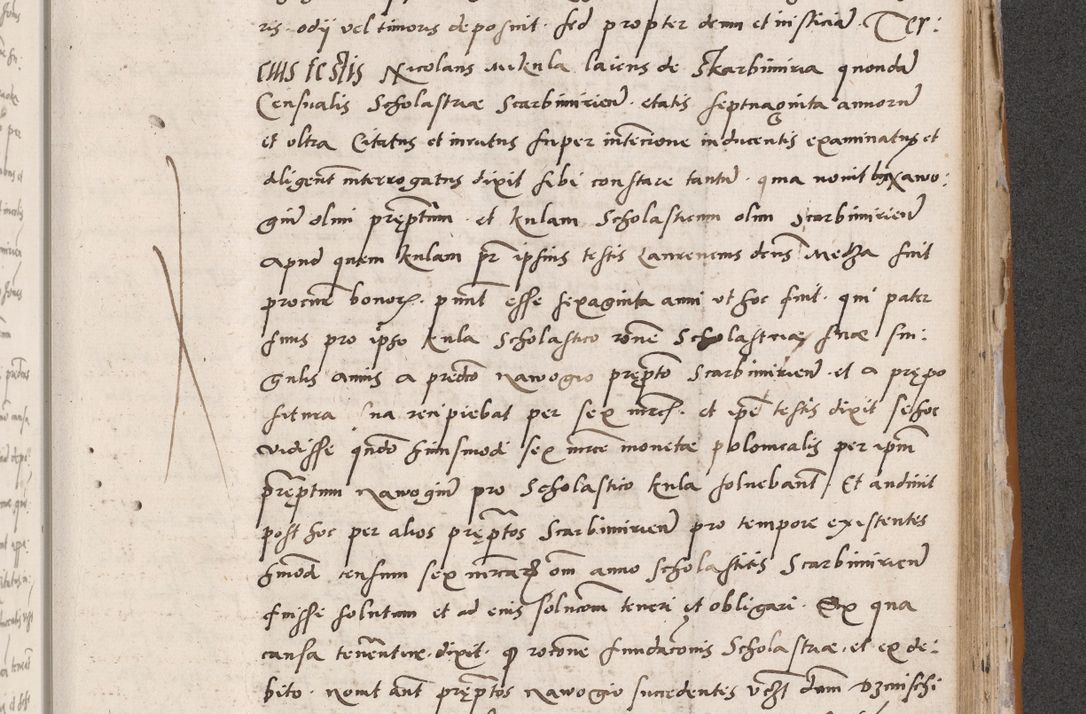 ris odij vel timoris deposuit sed propter deum et iusticiā. Ter:
cius testis Nicolaus Mikula laicus de Skarbimiria quondā
Censualis Scholastriae Scarbimirien̄. etatis septuaginta annorū
et ultra Citatus et iuratus super intencione inducentis examinatus et
diligent̄ interrogatus dixit sibi constare tantū. quia novit Nawo:
giū olim prępt̄um. et Kulam Scholasticum olim Scarbimirien̄
Apud quem Kulam pr̄ ipsius testis Laurencius dēns Medza fuit
procur̄ bonor̄. pūnt esse sexaginta anni ut hoc fuit. qui pater
suus pro ipso Kula Scholastico rōne Scholastriae suae sin:
gulis annis a predcō Nawogio pręptō Scarbimirien̄. et a prępo
situra sua recipiebat per sex mrc̄. et ipē testis dixit se hoc
vidisse qndō huiusmodi sex mrce monetae polonicalis per ipm̄
pręptum Nawogiū pro Scholastico Kula solvebant̄ Et audivit
post hoc per alios pręptos Scarbimirien̄ pro tempore existentes
hmōd censum sex mrcarȝ om̄ anno scholastitis Scarbimirien̄
fuisse solutum et ad eius soluc̄om teneri et obligari. Ex qua
causa tenērntur dixit. qꝫ racōne fundac̄onis Scholastriae. et ex de:
bito. Novit aut̄ pręptos Nawogio succedentes vcꝫt dum̄ Dzewischi